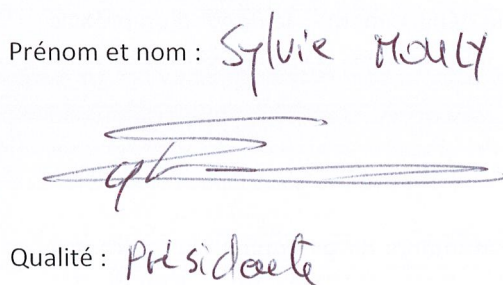 Prénom et nom : Sylvie MOULY
Qualité : Présidente